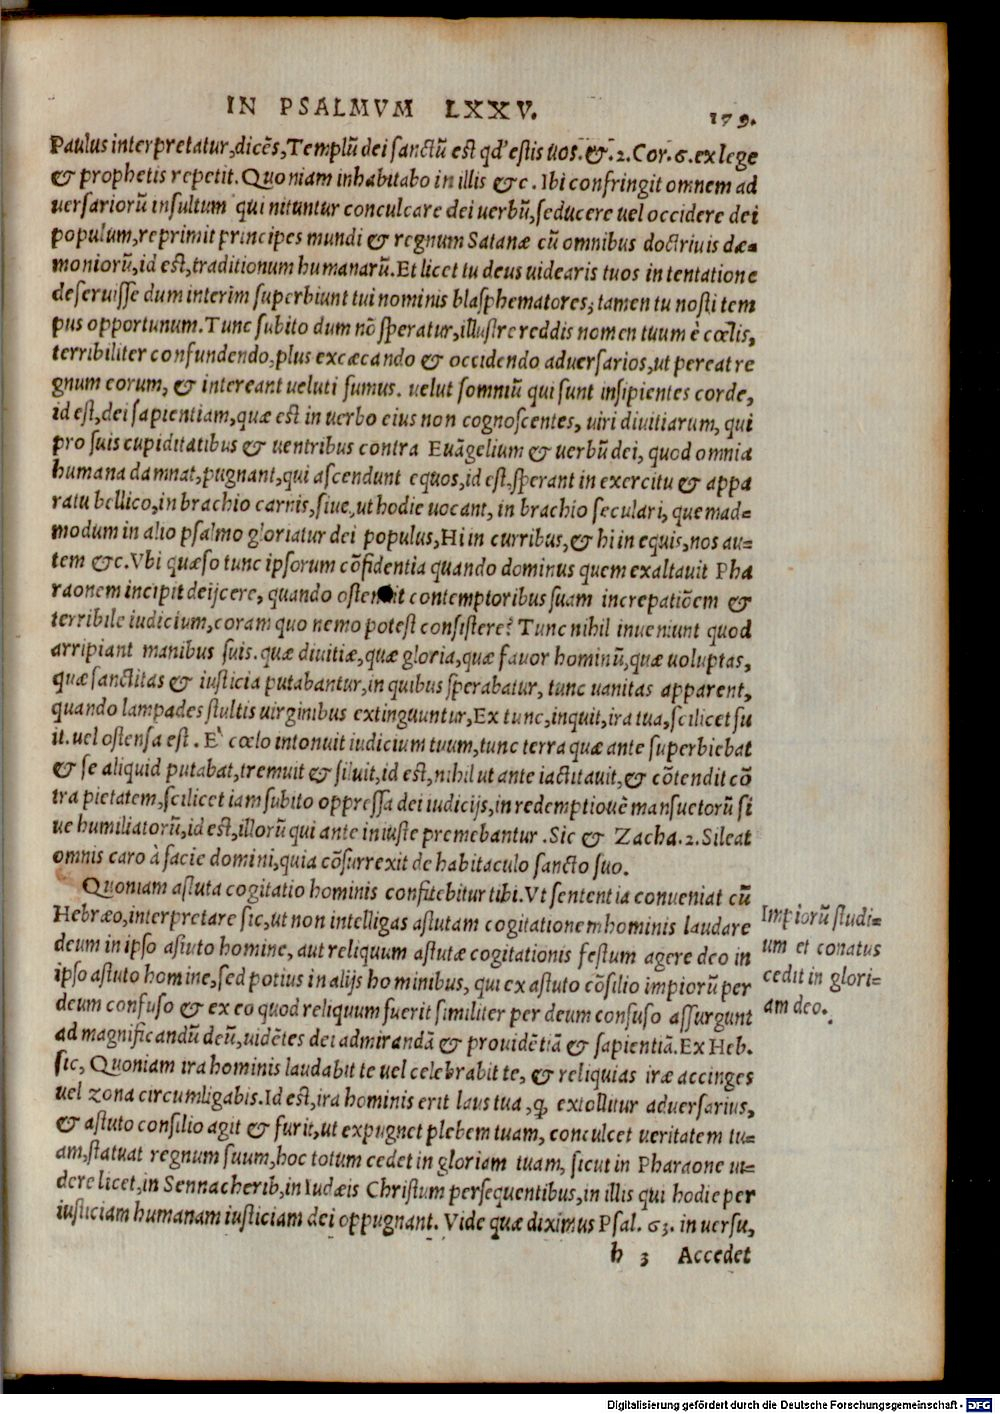 IN PSALMVM LXXV. 179.
Paulus interpretatur,dicẽs,Templũ dei sanctũ est qd' estis uos.&.2.Cor.6.ex lege
& prophetis repetit.Quoniam inhabitabo in illis &c. Ibi confringit omnem ad
uersariorũ insultum qui nituntur conculcare dei uerbũ,seducere uel occidere dei
populum,reprimit principes mundi & regnum Satanæ cũ omnibus doctriuis dæ=
moniorũ,id est,traditionum humanarũ.Et licet tu deus uidearis tuos in tentatione
deseruisse dum interim superbiunt tui nominis blasphematores, tamen tu nosti tem
pus opportunum.Tunc subito dum nõ speratur,illustre reddis nomen tuum è cœlis,
terribiliter confundendo,plus excæcando & occidendo aduersarios,ut pereat re
gnum eorum, & intereant ueluti fumus. uelut somniũ qui sunt insipientes corde,
id est,dei sapientiam,quæ est in uerbo eius non cognoscentes, uiri diuitiarum, qui
pro suis cupiditatibus & uentribus contra Euãgelium & uerbũ dei, quod omnia
humana damnat,pugnant,qui ascendunt equos,id est,sperant in exercitu & appa
ratu bellico,in brachio carnis,siue,ut hodie uocant, in brachio seculari, quemad=
modum in alio psalmo gloriatur dei populus,Hi in curribus,& hi in equis,nos au=
tem &c.Vbi quæso tunc ipsorum cõfidentia quando dominus quem exaltauit Pha
raonem incipit deijcere, quando ostendit contemptoribus suam increpatiõem &
terribile iudicium,coram quo nemo potest consistere? Tunc nihil inueniunt quod
arripiant manibus suis. quæ diuitiæ,quæ gloria,quæ fauor hominũ,quæ uoluptas,
quæ sanctitas & iusticia putabantur,in quibus sperabatur, tunc uanitas apparent,
quando lampades stultis uirginibus extinguuntur,Ex tunc,inquit,ira tua,scilicet fu
it.uel ostensa est. E' cœlo intonuit iudicium tuum,tunc terra quæ ante superbiebat
& se aliquid putabat,tremuit & siluit,id est,nihil ut ante iactitauit,& cõtendit cõ
tra pietatem,scilicet iam subito oppressa dei iudicijs,in redemptiouẽ mansuetorũ si
ue humiliatorũ,id est,illorũ qui ante iniuste premebantur .Sic & Zacha.2.Sileat
omnis caro à facie domini,quia cõsurrexit de habitaculo sancto suo.
Quoniam astuta cogitatio hominis confitebitur tibi.Vt sententia conueniat cũ
Hebræo,interpretare sic,ut non intelligas astutam cogitationem hominis laudare
deum in ipso astuto homine, aut reliquum astutæ cogitationis festum agere deo in
ipso astuto homine,sed potius in alijs hominibus, qui ex astuto cõsilio impiorũ per
deum confuso & ex eo quod reliquum fuerit similiter per deum confuso assurgunt
ad magnificandũ deũ,uidẽtes dei admirandã & prouidẽtiã & sapientiã.Ex Heb.
sic, Quoniam ira hominis laudabit te uel celebrabit te, & reliquias iræ accinges
uel zona circumligabis.Id est,ira hominis erit laus tua ,q extollitur aduersarius,
& astuto consilio agit & furit,ut expugnet plebem tuam, conculcet ueritatem tu=
am,statuat regnum suum,hoc totum cedet in gloriam tuam, sicut in Pharaone ui=
dere licet,in Sennacherib,in Iudæis Christum persequentibus,in illis qui hodie per
iusticiam humanam iusticiam dei oppugnant. Vide quæ diximus Psal. 63. in uersu,
h 3 Accedet
Impiorũ studi=
um et conatus
cedit in glori=
am deo.
Digitalisierung gefördert durch die Deutsche Forschungsgemeinschaft - DFG